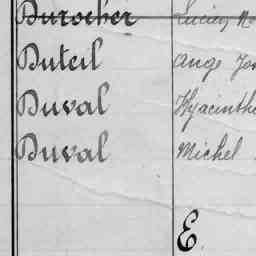 Durocher Lucien
Duteil Ange
Duval Hyacinthe
Duval Michel
E